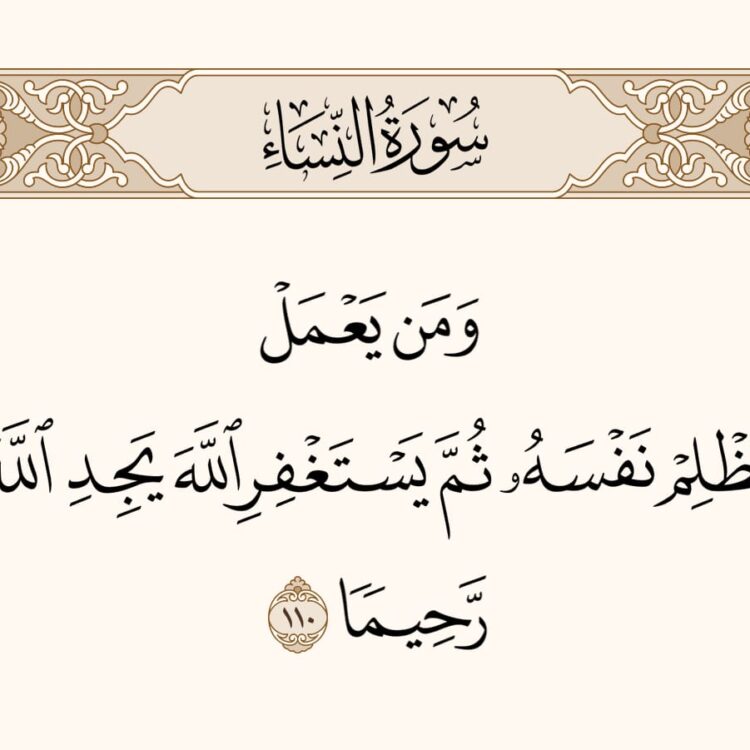 سُورَةُ النِّسَاءِ
وَمَن يَعْمَلْ
ظْلِمْ نَفْسَهُۥ ثُمَّ يَسْتَغْفِرِ ٱللَّهَ يَجِدِ ٱللَّ
رَّحِيمًا ١١٠